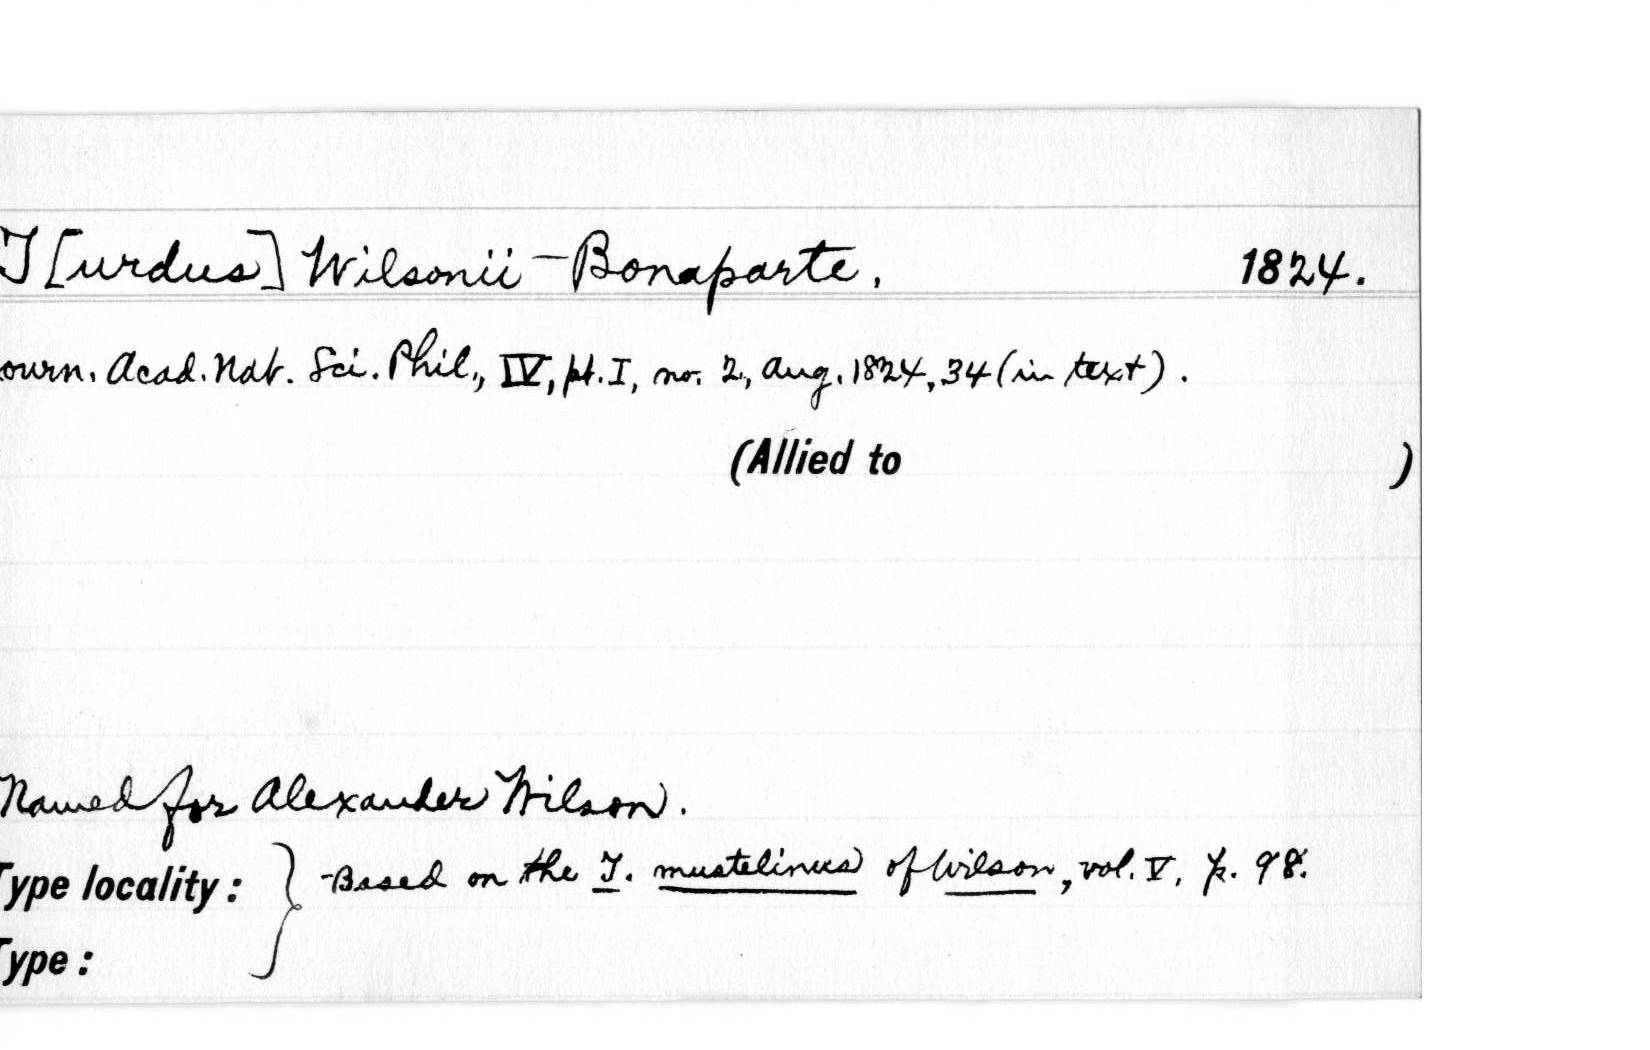 T[urdus] Wilsonii Bonaparte, 1824.
ourn. Acad. Nat. Sci. Phil., IV, pt. I, no. 2, Aug. 1824, 34 (in text).
(Allied to )
Named for Alexander Wilson.
Type locality: } Based on the T. mustelinus of Wilson, vol. V, p. 98.
Type: